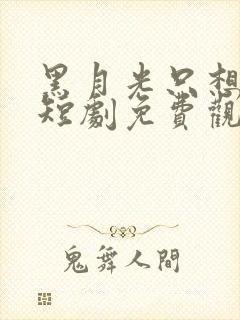 黑月光只想
短劇免費觀
鬼舞人間